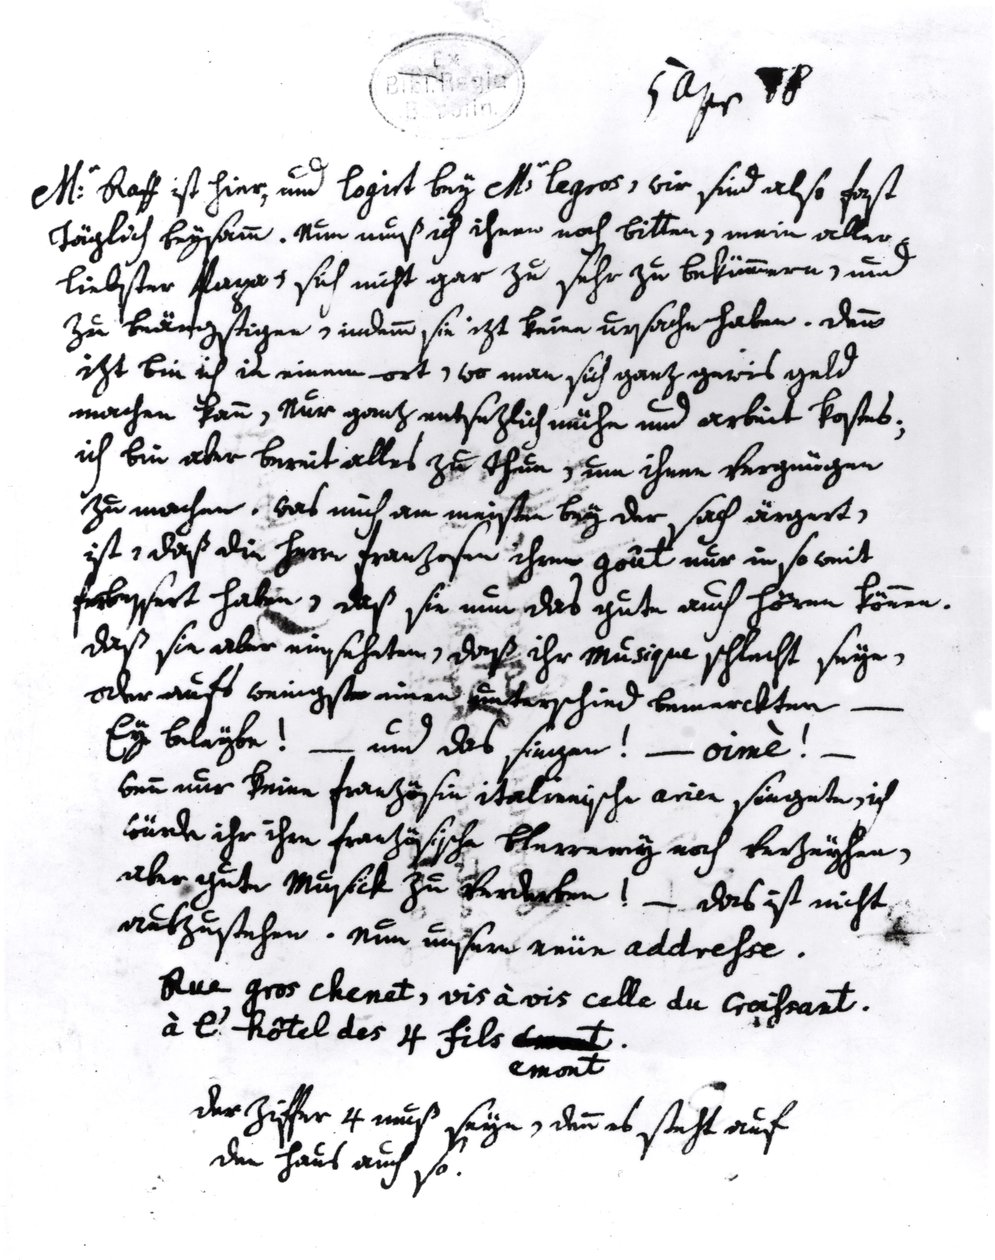 Ex
Bibl. Regia
Berolin.
5 Apr 78
M:r Raff ist hier, und logirt bey M:r legros, wir sind also fast
täglich beysam̄. Nun muß ich ihnen noch bitten, mein aller-
liebster Papa, sich nicht gar zu sehr zu bekümmern, und
zu beängstigen, indem̄ sie izt keine ursache haben. den̄
izt bin ich in einem ort, wo man sich ganz gewis geld
machen kan̄, Nur ganz entsezlich mühe und arbeit kostet;
ich bin aber bereit alles zu thun, um ihnen vergnügen
zu machen. was mich am meisten bey der sach ärgert,
ist, daß die herrn franzosen ihren goût nur in so weit
verbessert haben, daß sie nun das gute auch hören kön̄en.
daß sie aber einseheten, daß ihr Musique schlecht seye,
oder aufs wenigste einen unterschied bemerckten —
Ey beleybe! — und das singen! — oimè! —
wen̄ nur keine französin italienische arien singete, ich
würde ihr ihre französische Plererey noch verzeyhen,
aber gute Musick zu verderben! — das ist nicht
auszustehen. Nun unsere neüe addresse.
Rue gros chenet, vis à vis celle du Croissant.
à l'hôtel des 4 fils .
emont
der ziffer 4 muß seyn, den̄ es steht auf
den haus auch so.